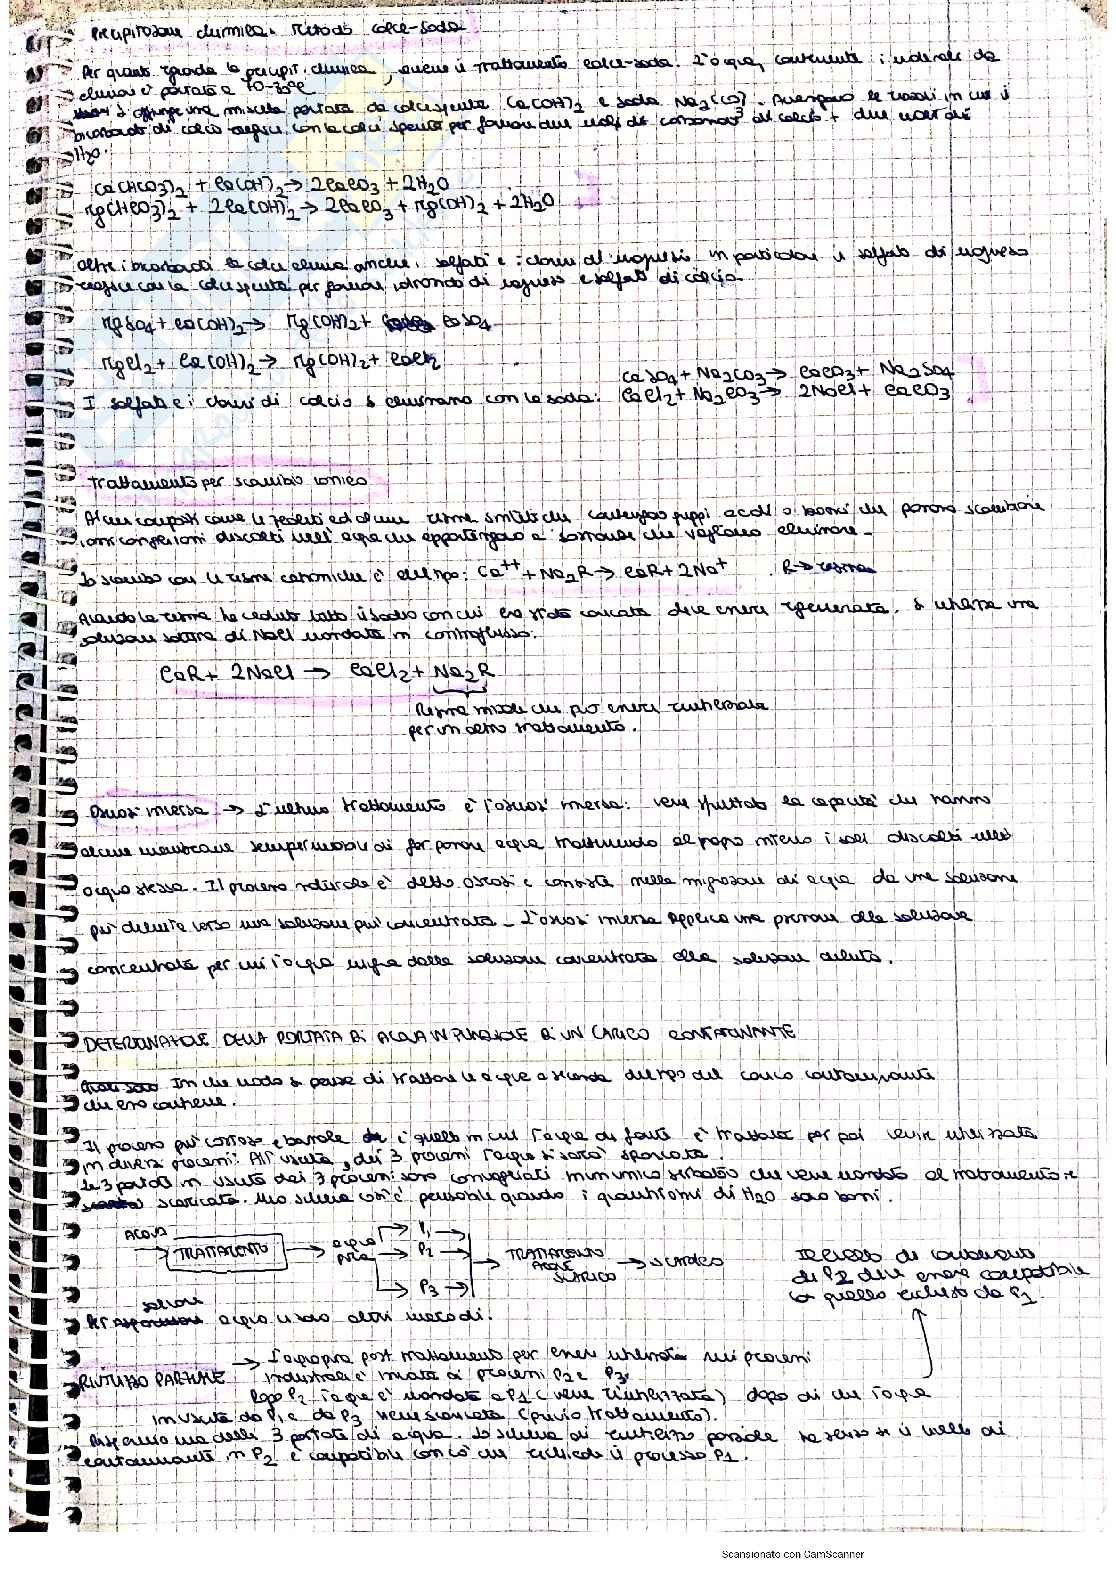 Precipitazione chimica. Metodo calce-soda
Per quanto riguarda la precipit. chimica, avviene il trattamento calce-soda. L'acqua, contenente i minerali da
eliminare è portata a 70-75°C
si aggiunge una miscela portata da calce spenta Ca(OH)2 e soda Na2(CO). Avvengono le reazioni in cui il
bicarbonato di calcio reagisce con la calce spenta per formare due moli di carbonato di calcio + due moli di
H2O.
Ca(HCO3)2 + Ca(OH)2 → 2CaCO3 + 2H2O
Mg(HCO3)2 + 2Ca(OH)2 → 2CaCO3 + Mg(OH)2 + 2H2O
Oltre i bicarbonati la calce elimina anche i solfati e i cloruri di magnesio, in particolare il solfato di magnesio
reagisce con la calce spenta per formare idrossido di magnesio e solfati di calcio.
MgSO4 + Ca(OH)2 → Mg(OH)2 + CaSO4
MgCl2 + Ca(OH)2 → Mg(OH)2 + CaCl2
CaSO4 + Na2CO3 → CaCO3 + Na2SO4
I solfati e i cloruri di calcio si eliminano con la soda: CaCl2 + Na2CO3 → 2NaCl + CaCO3
Trattamento per scambio ionico
Alcuni composti come le zeoliti ed alcune resine sintetiche contengono gruppi acidi o basici che possono scambiare
ioni con gli ioni disciolti nell'acqua che appartengono a sostanze che vogliamo eliminare.
Lo scambio con le resine cationiche è del tipo: Ca++ + Na2R → CaR + 2Na+ R → resina
Quando la resina ha ceduto tutto il sodio con cui era stata caricata deve essere rigenerata. Si utilizza una
soluzione satura di NaCl mandata in controflusso.
CaR + 2NaCl → CaCl2 + Na2R
Resina iniziale che può essere riutilizzata
per un altro trattamento.
Osmosi inversa → L'ultimo trattamento è l'osmosi inversa: viene sfruttata la capacità che hanno
alcune membrane semipermeabili di far passare acqua trattenendo al proprio interno i sali disciolti nell'
acqua stessa. Il processo naturale è detto osmosi e consiste nella migrazione di acqua da una soluzione
più diluita verso una soluzione più concentrata. L'osmosi inversa applica una pressione alla soluzione
concentrata per cui l'acqua migra dalla soluzione concentrata alla soluzione diluita.
DETERMINAZIONE DELLA PORTATA DI ACQUA IN FUNZIONE DI UN CARICO CONTAMINANTE
In che modo si pensa di trattare le acque a seconda del tipo del carico contaminante
che esso contiene.
Il processo più costoso e banale è quello in cui l'acqua di fonte è trattata per poi venire utilizzata
in diversi processi. All'uscita, dei 3 processi l'acqua si sarà sporcata.
Le 3 portate in uscita dai 3 processi sono convogliati in un unico serbatoio che viene mandato al trattamento e
scaricata. Uno schema così è pensabile quando i quantitativi di H2O sono bassi.
ACQUA → TRATTAMENTO → acqua pura → P1 → P2 → P3 → TRATTAMENTO ACQUE SCARICO → SCARICO
Il livello di contaminante
di P2 deve essere compatibile
con quello richiesto da P1.
Per salvare acqua usano altri metodi.
RIUTILIZZO PARZIALE → L'acqua pura post trattamento per essere utilizzata nei processi
industriali è inviata ai processi P2 e P3.
Dopo P2 l'acqua è mandata a P1 (viene riutilizzata) dopo di che l'acqua
in uscita da P1 e da P3 viene scaricata (previo trattamento).
Risparmio una delle 3 portate di acqua. Lo schema di riutilizzo parziale ha senso se il livello di
contaminante in P2 è compatibile con ciò che richiede il processo P1.
Scansionato con CamScanner